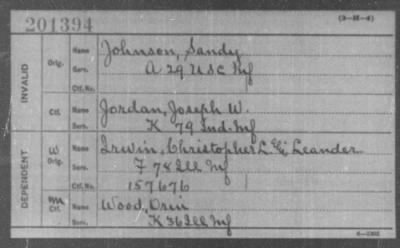 201394
(3-M-4)
INVALID
Orig. Name Johnson, Sandy
Serv. A 29 U S C Inf
Ctf. No.
Ctf. Name Jordan, Joseph W.
Serv. K 79 Ind. Inf
DEPENDENT
W Orig. Name Irwin, Christopher L. Leander
Serv. F 78 Ill Inf
Ctf. No. 157676
M Ctf. Name Wood, Orin
Serv. K 36 Ill Inf